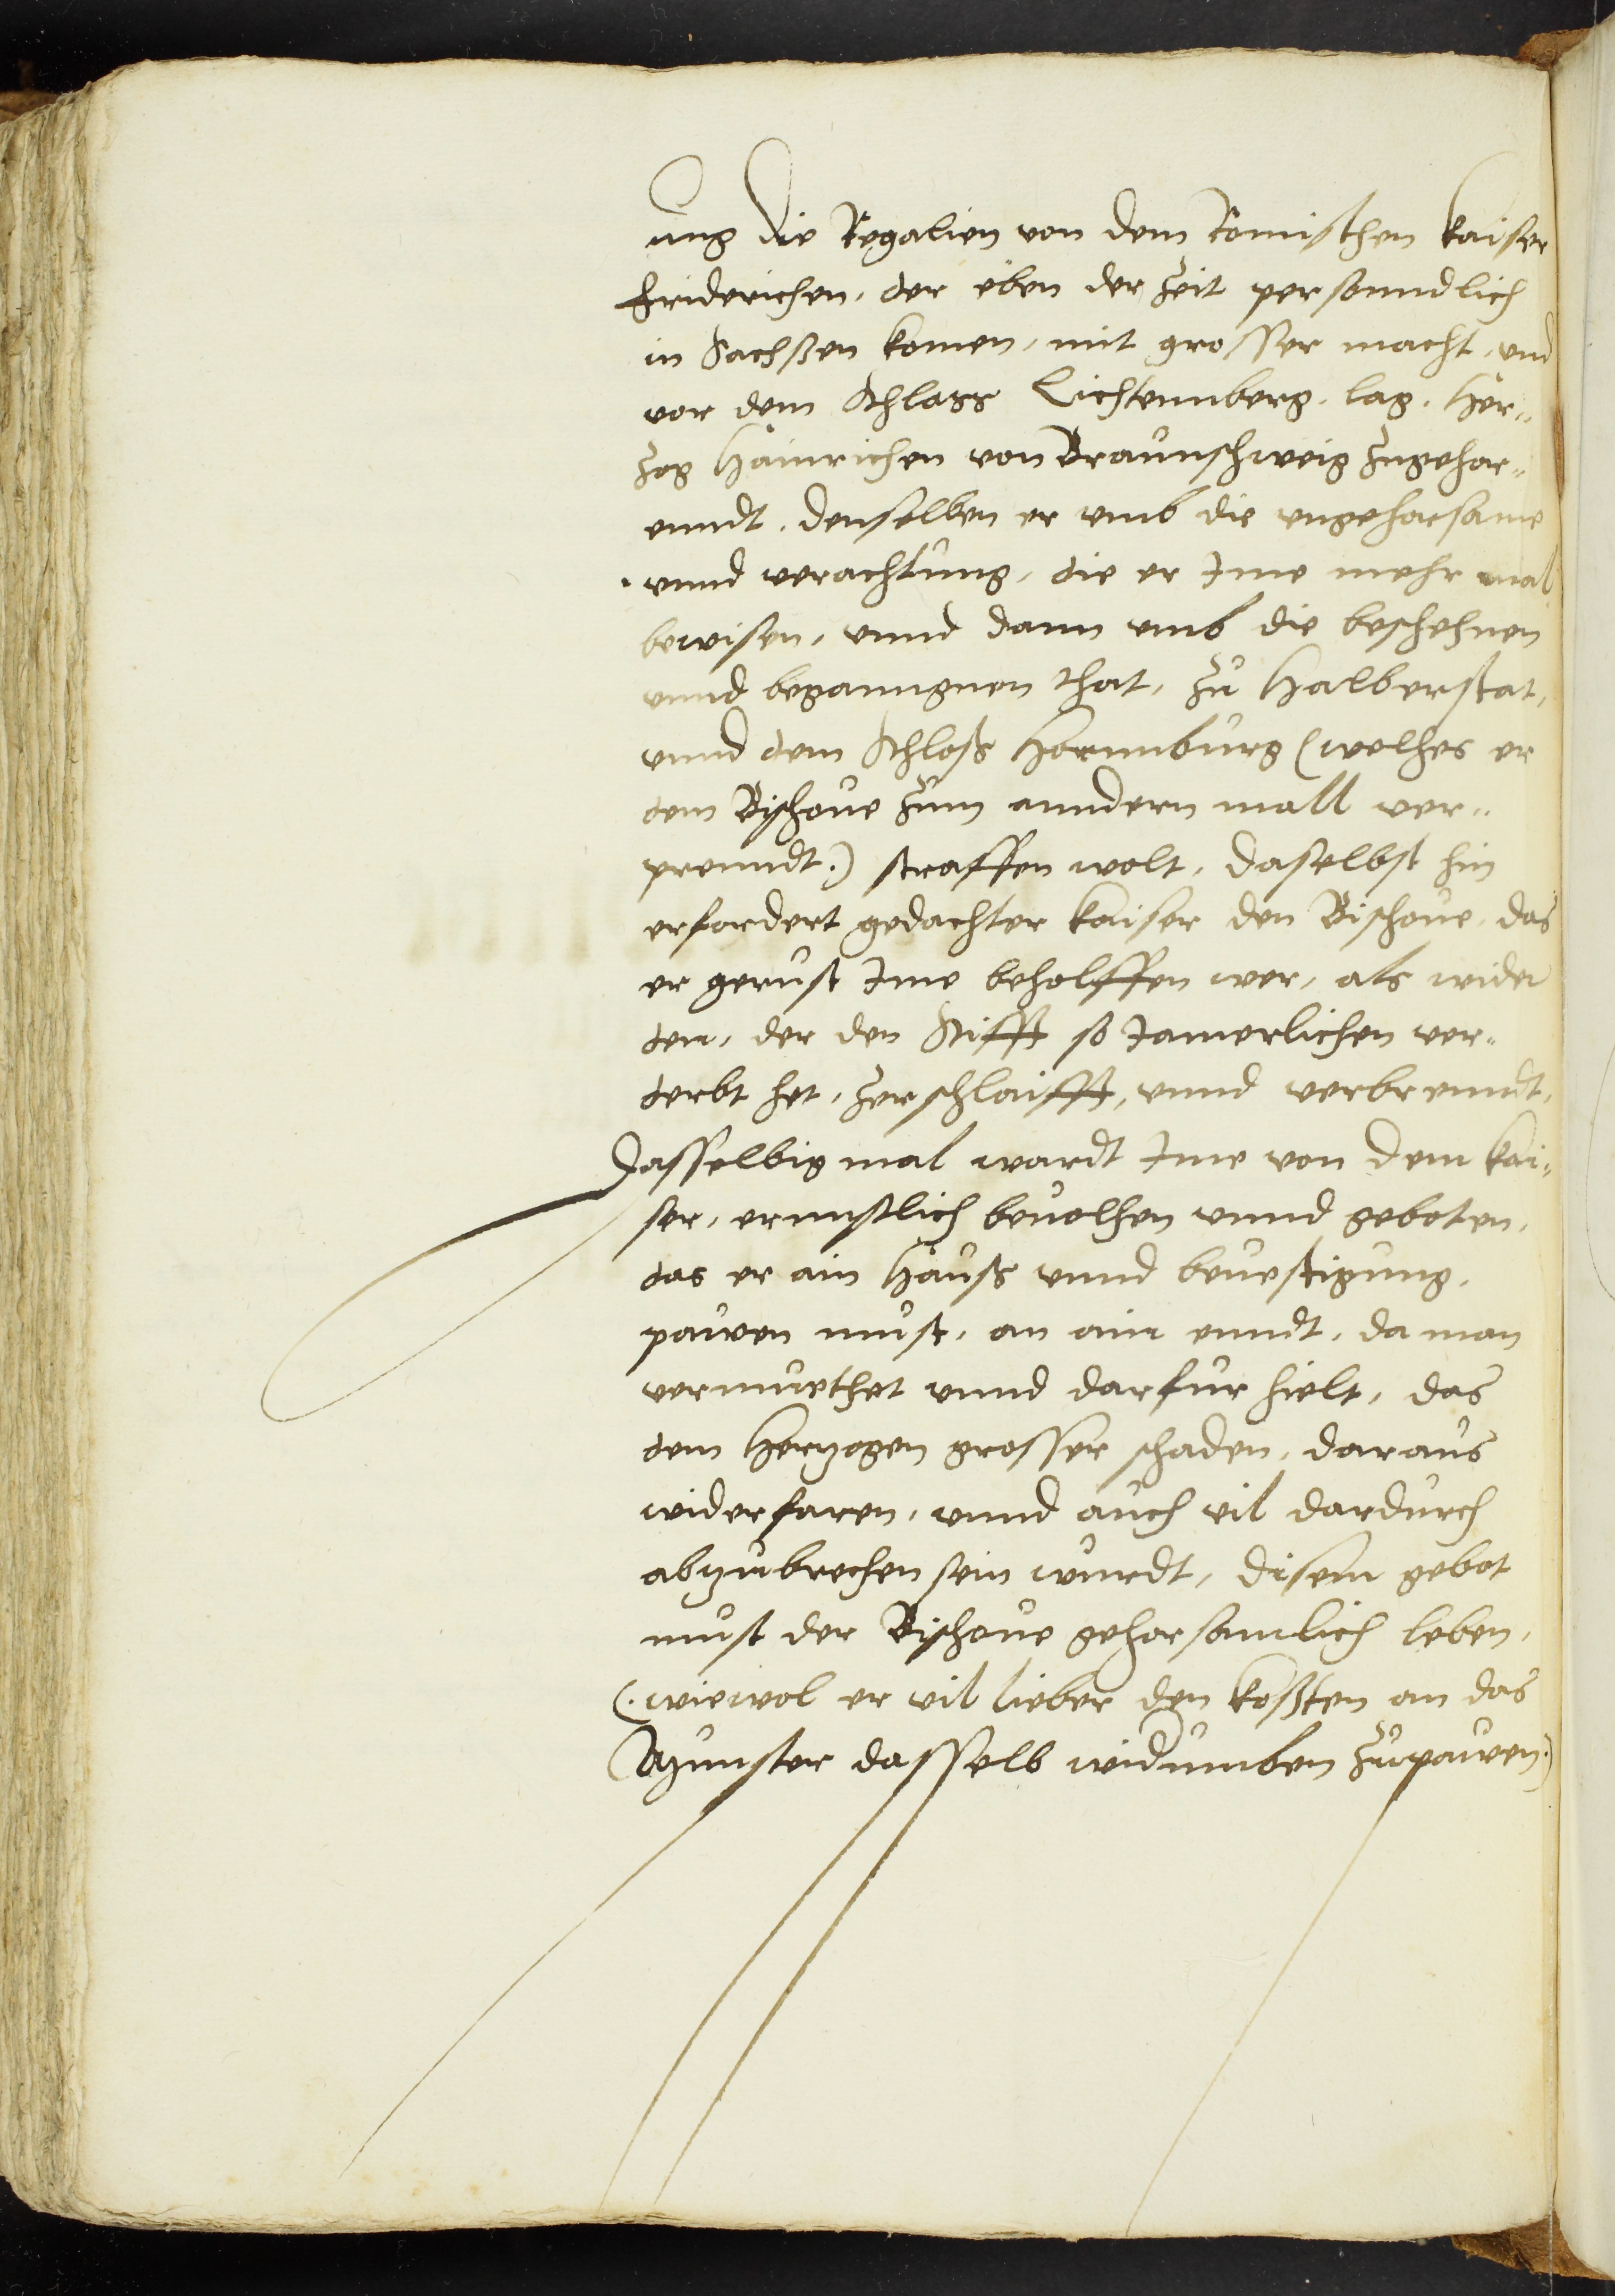 ung die Regalien von dem Romischen kaiser
friderichen, der eben der Zeit personndlich
in Sachssen komen, mit grosser macht, und
vor dem Schloss Liechtennberg, lag, Her¬
zog Hainrichen von Braunschweig zugehor¬
enndt, denselben er umb die ungehorsame
unnd verachtung, die er Ime mehr mal
bewisen, unnd dann umb die beschehnen
unnd begangnen that, zu Halberstat,
unnd dem Schloss Hornnburg (welhes er
dem Bischove zum anndern mall ver¬
prenndt.) straffen wolt, daselbst hin
erfordert gedachter kaiser den Bischove, das
er gerust Ime beholffen wer, als wider
den, der den Stifft so Jamerlichen ver¬
derbt het, zerschlaifft, unnd verbrenndt,
Dasselbig mal wardt Ime von dem kai¬
ser, ernnstlich bevolhen unnd geboten,
das er ain Hauss unnd bevestigung,
pawen must, an aim enndt, da man
vermuethet unnd darfur hielt, das
dem Herzogen grosser schaden, daraus
widerfaren, unnd auch vil dardurch
abzubrechen sein wurdt, disem gebot
must der Bischove gehorsamlich leben,
(.wiewol er vil lieber den kossten an das
Munster dasselb widumben zupawen.)